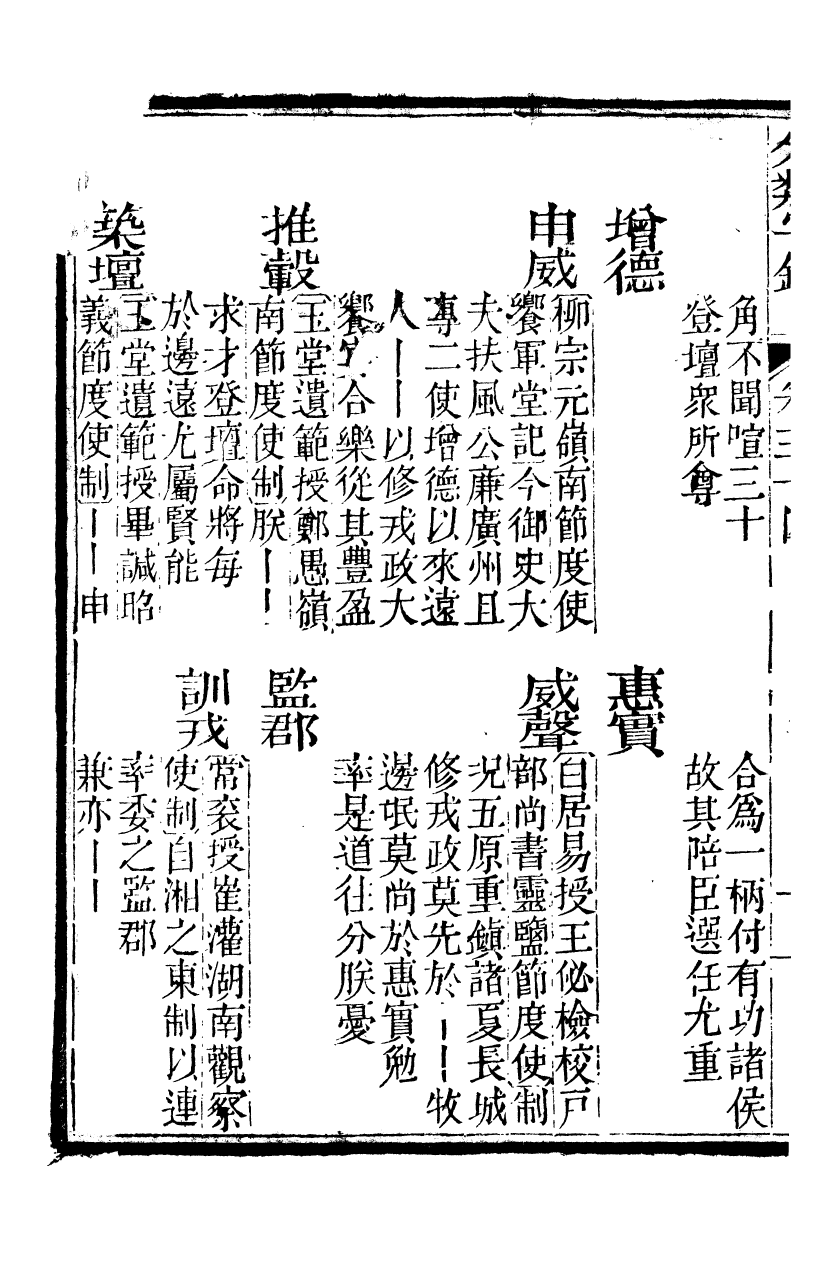 角不聞喧三十
登壇衆所尊
增德
申威
柳宗元嶺南節度使
饗軍堂記今御史大
夫扶風公廉廣州且
專二使增德以來遠
人｜｜以修戎政大
饗宴合樂從其豐盈
推轂
玉堂遺範授鄭愚嶺
南節度使制朕｜｜
求才登壇命將每
於邊遠尤屬賢能
築壇
玉堂遺範授畢諴昭
義節度使制｜｜申
合爲一柄付有功諸侯
故其陪臣選任尤重
惠實
威聲
白居易授王佖檢校戸
部尚書靈鹽節度使制
況五原重鎮諸夏長城
修戎政莫先於｜｜牧
邊氓莫尚於惠實勉
率是道往分朕憂
監郡
訓戎
常袞授崔灌湖南觀察
使制自湘之東制以連
率委之監郡
兼亦｜｜